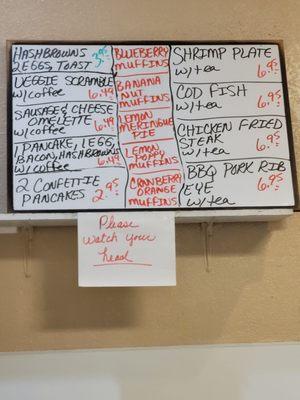 HASHBROWNS
2 EGGS, TOAST 3.95
VEGGIE SCRAMBLE
w/coffee 6.49
SAUSAGE & CHEESE
OMELETTE
w/coffee 6.49
1 PANCAKE, 1 EGG,
BACON, HASHBROWNS
w/coffee 6.49
2 CONFETTIE
PANCAKES 2.95
BLUEBERRY
MUFFINS
BANANA
NUT
MUFFINS
LEMON
MERINGUE
PIE
LEMON
POPPY
MUFFINS
CRANBERRY
ORANGE
MUFFINS
SHRIMP PLATE
w/tea 6.95
COD FISH
w/tea 6.95
CHICKEN FRIED
STEAK
w/tea 6.95
BBQ PORK RIB
EYE
w/tea 6.95
Please
watch your
head